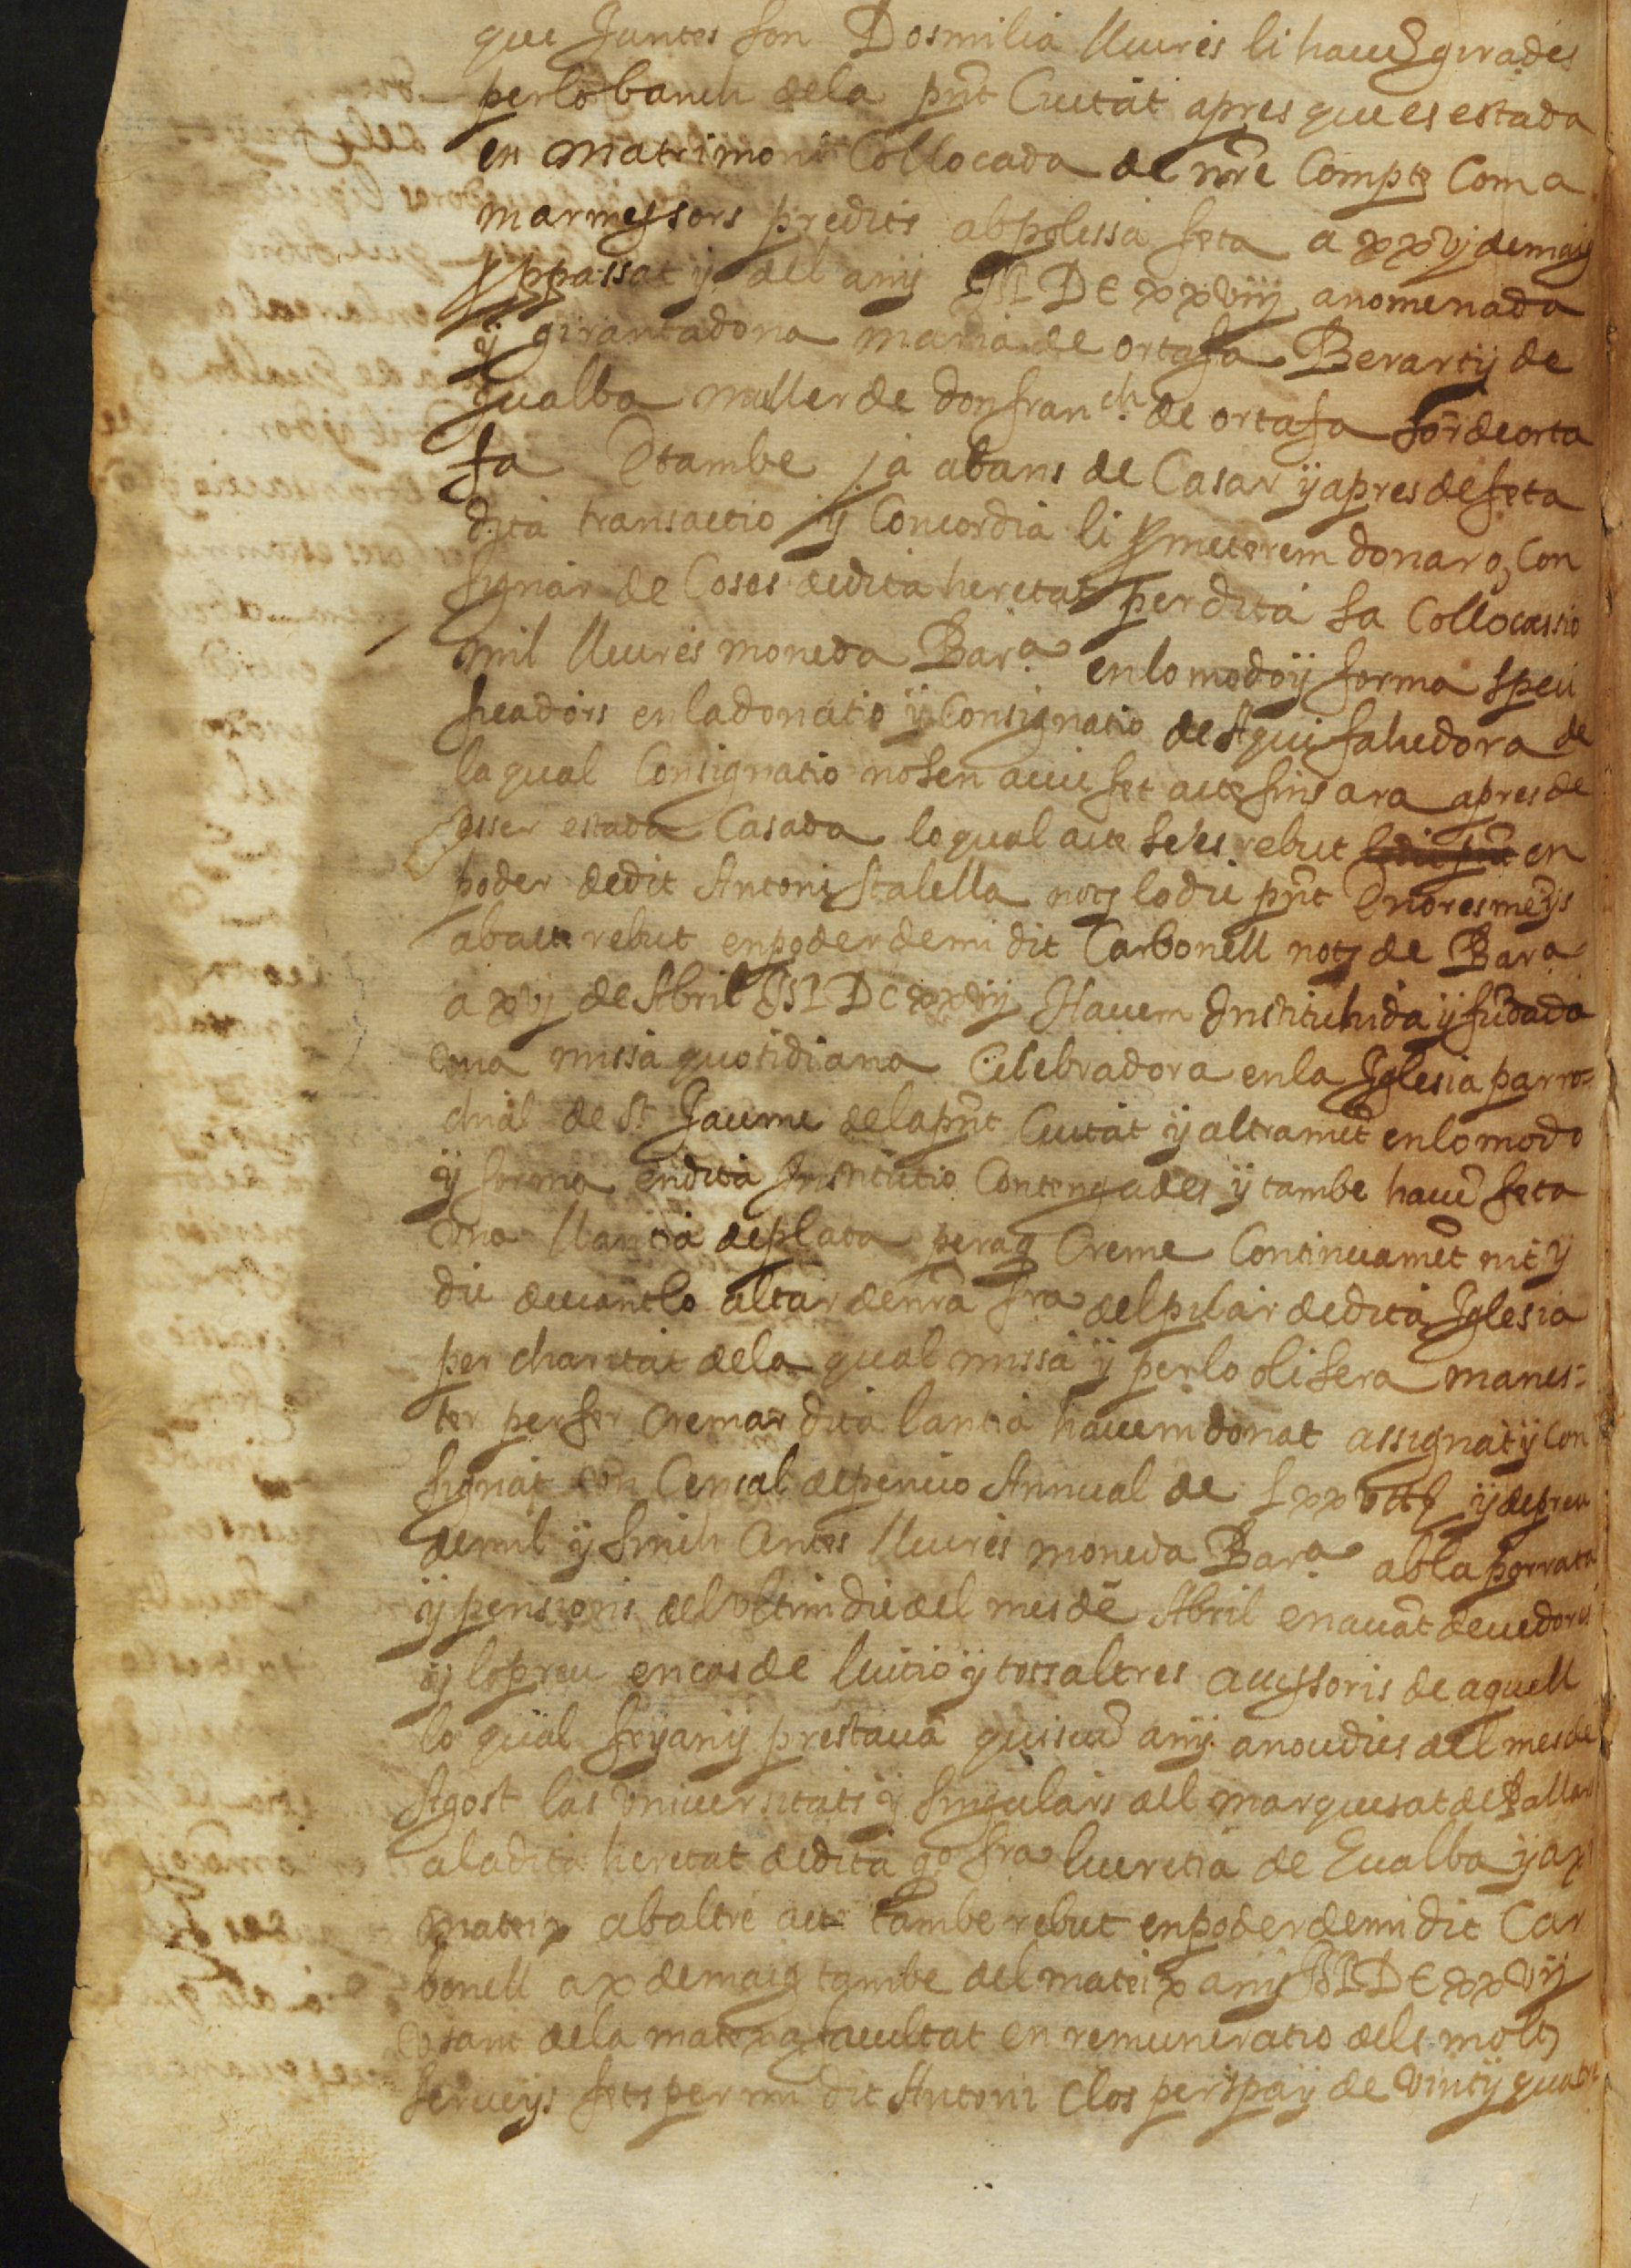 que Juntes son Dosmilia lliures li haue͂ girades
perlo banch dela pn͂t Ciutat apres que es estada
en matrimoni Collocada de nr͂e Compte Com a
marmessors predits ab polissa feta a xxvj de maig
ppassat y del any MDCxxviij anomenada
y girant a dona maria de ortafa Berart y de
gualba muller de don fran.ch de ortafa sor͂ de orta
fa E tambe ja abans de Casar y apres de feta
dita transactio y Concordia li prometerem donar o, Con
signar de Coses de dita heretat per dita sa Collocassio
mil lliures moneda Bar.a en lo modo y forma speci
ficadors en la donatio y Consignatio de Aqui fahedora de
la qual Consignatio nosen auie fet acte fins ara apres de
esser estada Casada lo qual acte se es rebut en
poder de dit Antoni Scalella not lo die pn͂t E nores menys
ab acte rebut en poder de mi dit Carbonell not de Bar.a
a xvj de Abril MDCxxvij Hauem Instituhida y fu͂dada
vna missa quotidiana Celebradora en la Iglesia parro=
chial de St Jaume de la pn͂t Ciutat y altrame͂t en lo modo
y forma en dita Institutio Contengudes y tambe haue͂ feta
vna llantia de plata peraq Creme Continuame͂t nit y
die deuant lo altar de nr͂a Sra del pilar de dita Iglesia
per charitat dela qual missa y per lo oli sera manes=
ter per fer cremar dita lantia hauem donat assignat y Con
signat vn Censal de pencio Annual de Lxxv ll y de preu
de mil y sinch Centes lliures moneda Bar.a ab la porrata
y pensions del vltim die del mes de Abril en aua͂t deuedores
y lo preu en cas de luitio y tots altres accessoris de aquell
lo qual fey any prestaua quiscu͂ any a nou dies del mes de
Agost las vniuersitats y singulars del marquesat de Pallars
a la dita heretat de dita qo Sra lucretia de Gualba y ax
mateix ab altre acte tambe rebut en poder de mi dit Car
bonell a x de maig tambe del mateix any MDCxxvij
vsant dela mateixa facultat en remuneratio dels molts
serueys fets per mi dit Antoni Clos per spay de vint y quatre